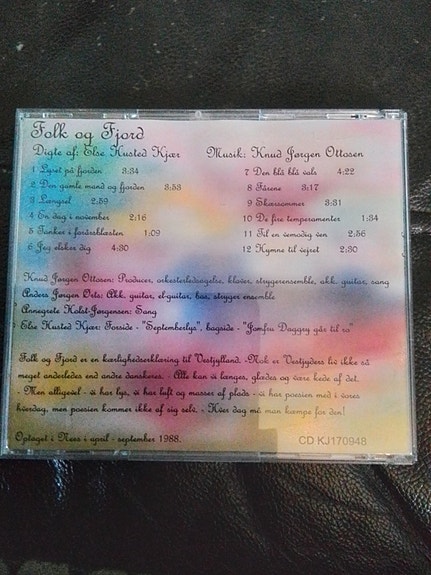 Folk og Fjord
Digte af: Else Husted Kjær
Musik: Knud Jørgen Ottosen
1 Lyset på fjorden 3:34
2 Den gamle mand og fjorden 3:53
3 Længsel 2:59
4 En dag i november 2:16
5 Tanker i forårsblæsten 1:09
6 Jeg elsker dig 4:30
7 Den blå blå vals 4:22
8 Fårene 3:17
9 Skærsommer 3:31
10 De fire temperamenter 1:34
11 Til en vemodig ven 2:56
12 Hymne til vejret 2:30
Knud Jørgen Ottosen: Producer, orkesterledsagelse, klaver, strygerensemble, akk. guitar, sang
Anders Jørgen : Akk. guitar, el-guitar, bas, stryger ensemble
Annegrete Holst-Jørgensen: Sang
Else Husted Kjær: Forside - "Septemberlys", bagside - "Jomfru Daggry går til ro"
Folk og Fjord er en kærlighedserklæring til Vestjylland. -Nok er Vestjyders liv ikke så
meget anderledes end andre danskeres. - Alle kan vi længes, glædes og være kede af det.
- Men alligevel - vi har lys, vi har luft og masser af plads - vi har poesien med i vores
hverdag, men poesien kommer ikke af sig selv. - Hver dag må man kæmpe for den!
Optaget i Nees i april - september 1988.
CD KJ170948